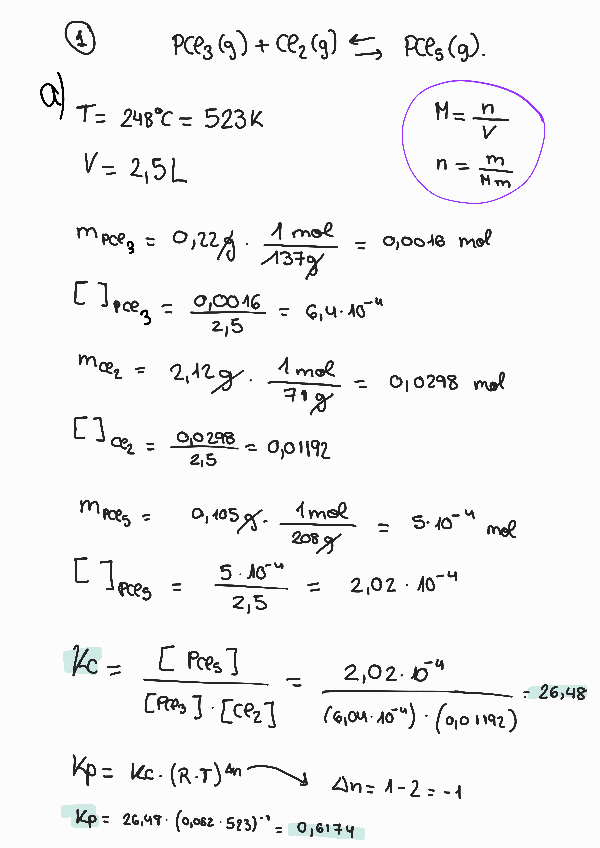 1 PCl₃(g) + Cl₂(g) ⇆ PCl₅(g).
a) T = 248°C = 523K
M = n/V
V = 2,5L
n = m/Mm
m PCl₃ = 0,22g · 1 mol/137g = 0,0016 mol
[ ] PCl₃ = 0,0016/2,5 = 6,4·10⁻⁴
m Cl₂ = 2,12g · 1 mol/71g = 0,0298 mol
[ ] Cl₂ = 0,0298/2,5 = 0,01192
m PCl₅ = 0,105g · 1mol/208g = 5·10⁻⁴ mol
[ ] PCl₅ = 5·10⁻⁴/2,5 = 2,02·10⁻⁴
Kc = [PCl₅]/[PCl₃]·[Cl₂] = 2,02·10⁻⁴/(6,04·10⁻⁴)·(0,01192) = 26,48
Kp = Kc·(R·T)^Δn → Δn = 1-2 = -1
Kp = 26,48·(0,082·523)⁻¹ = 0,6174